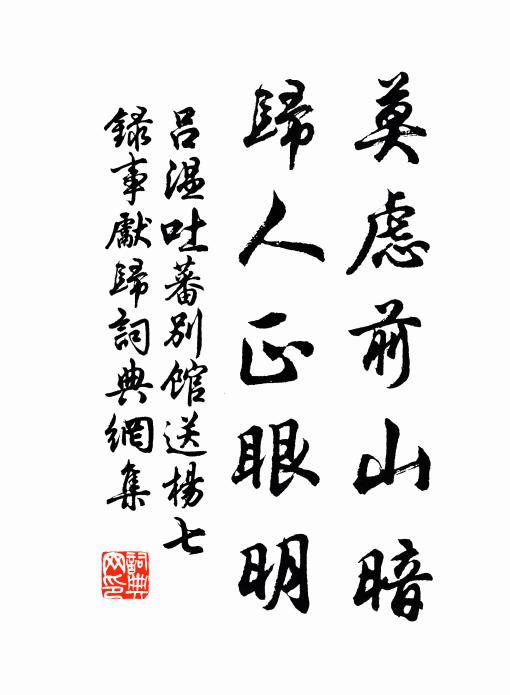 莫慮前山暗
歸人正眼明
呂溫吐蕃別館送楊七
錄事獻歸詞典網集
詞典
网印